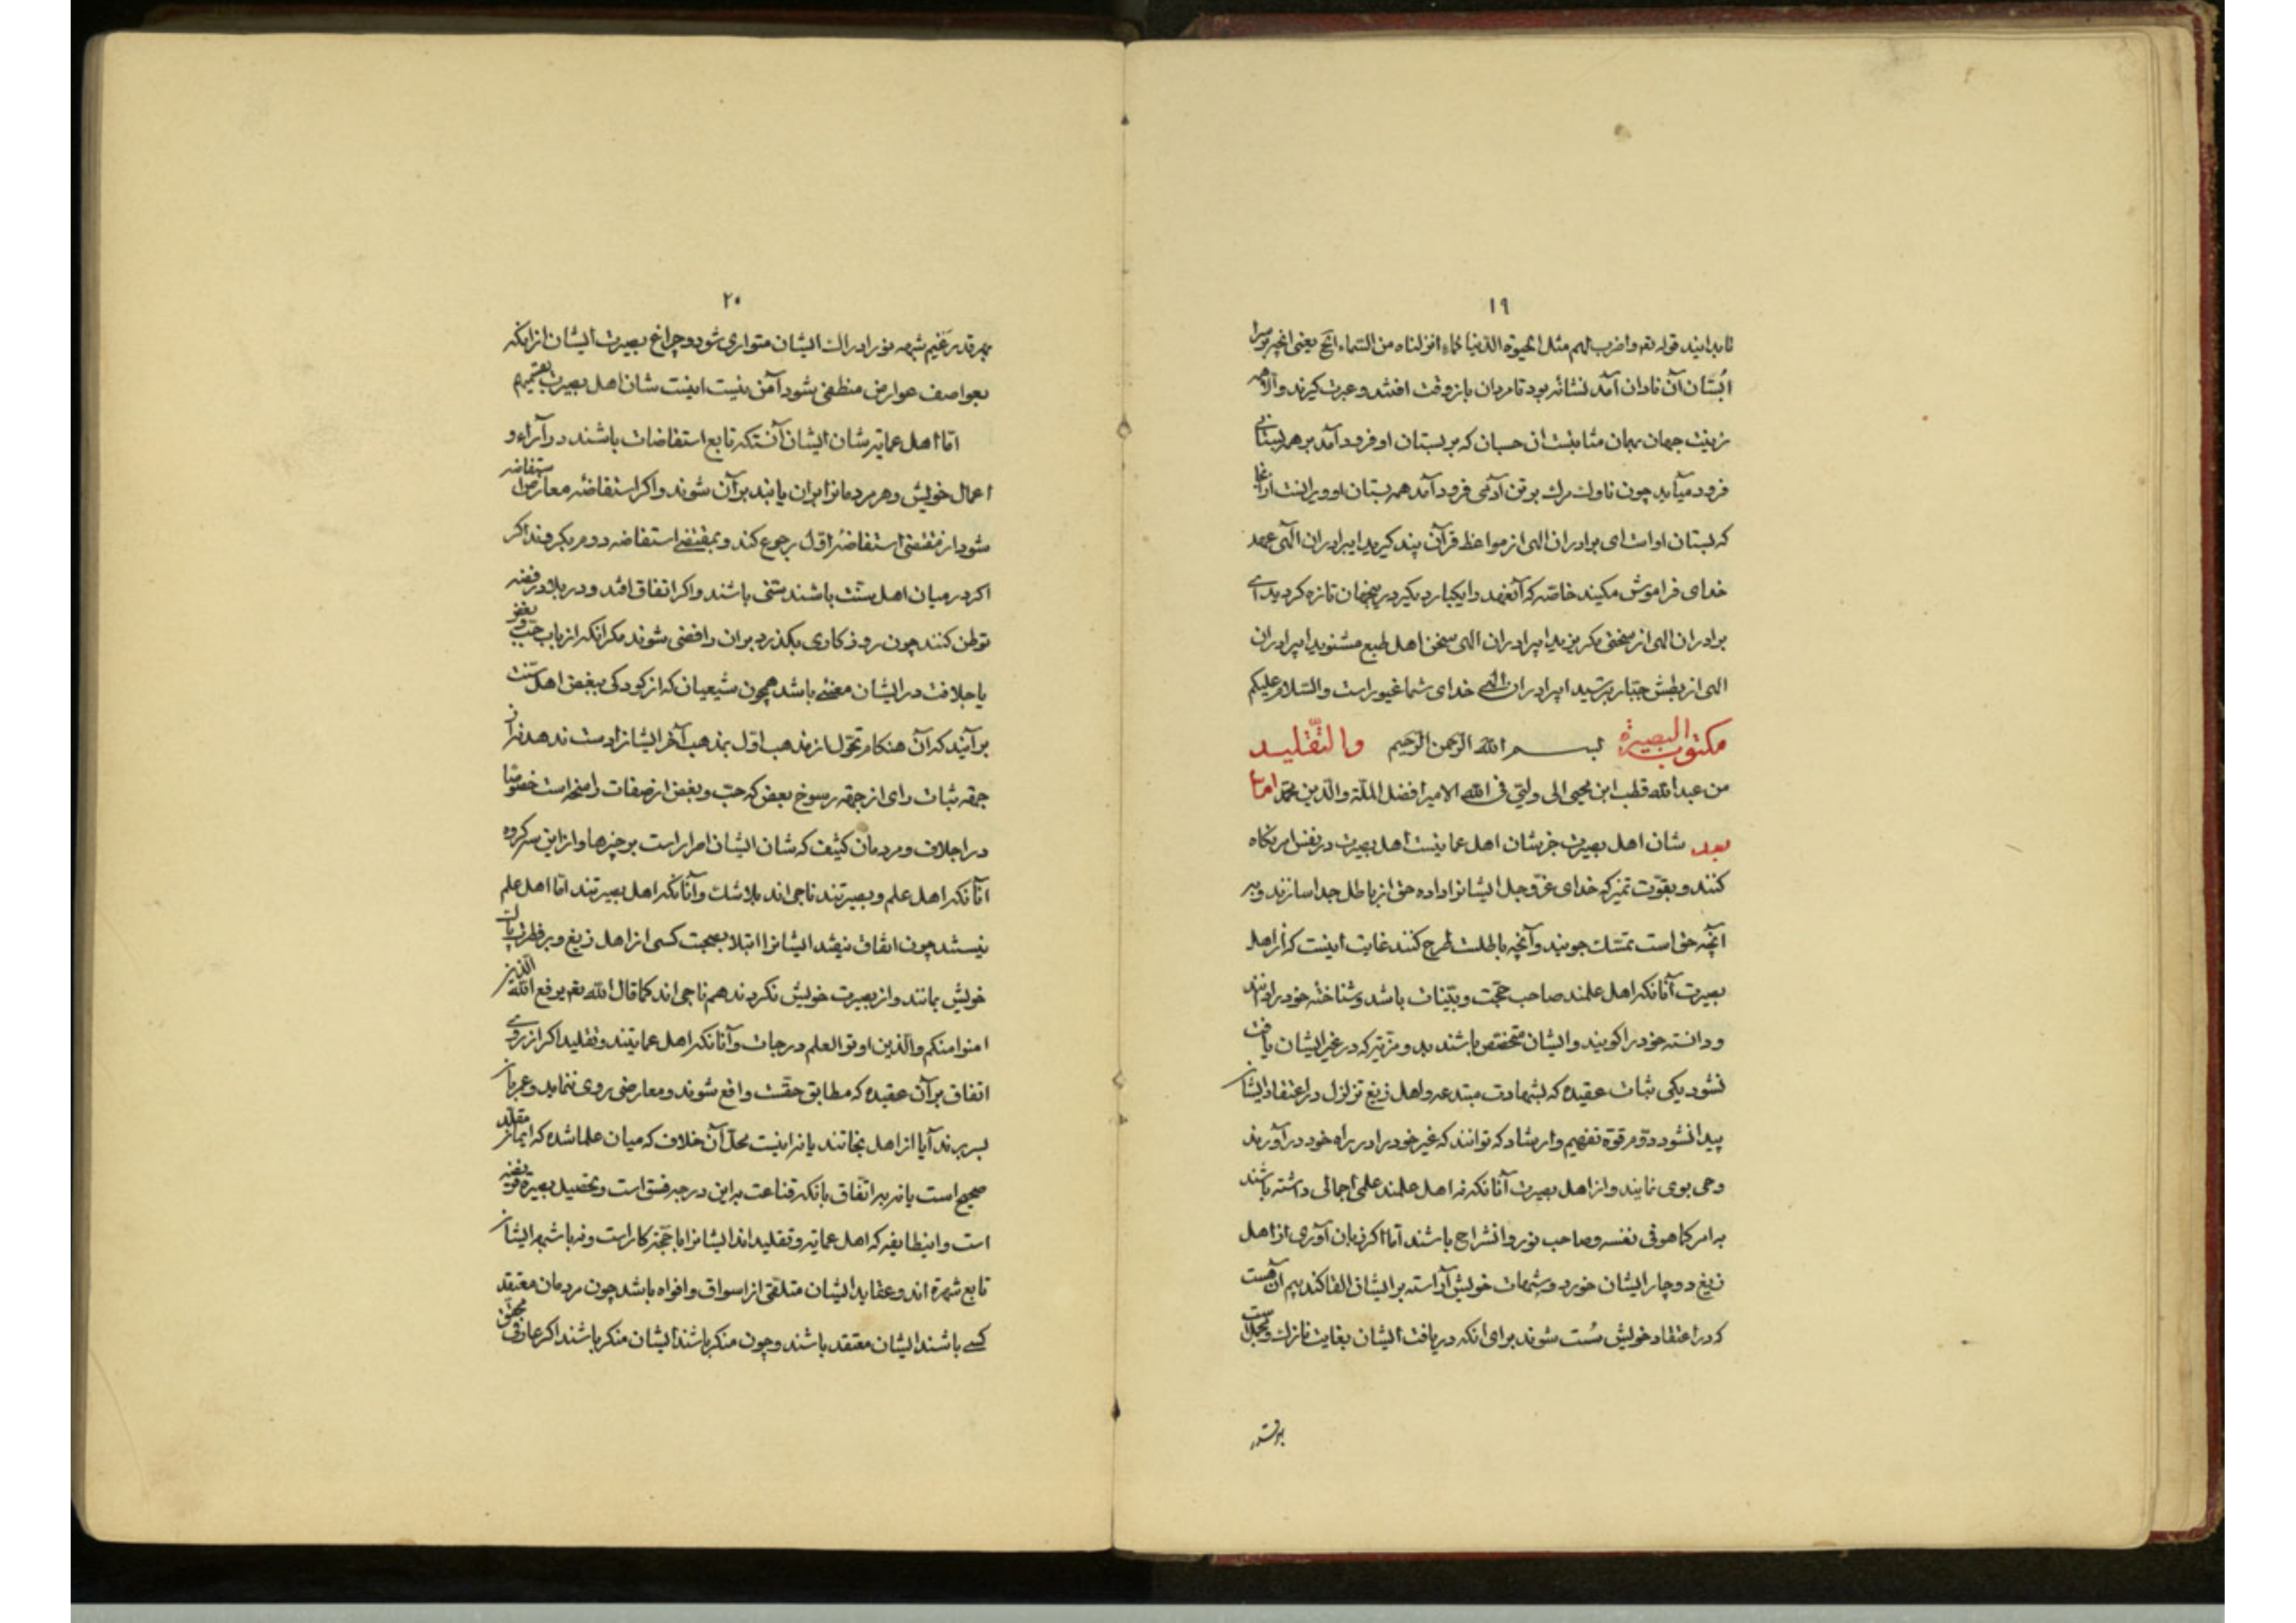 ١٩
تا بدانید قوله تعه واضرب لهم مثل الحیوة الدنیا کماء انزلناه من السماء الخ یعنی انچه بر سر
بُستان آن نادان آمد نشانه بود تا مردان بازو قت افتند و عبرت گیرند و الا همه
زینت جهان بهمان مثابتست ان حسبان که بر بستان او فرود آمد بر همه بستانی
فرود میآید چون ناوک مرک بر تن آدمی فرود آمد همه بستان او ویرانست
که بستان اوست ای برادران الهی از مواعظ قرآن پند کیرید ایبرادران الهی عهد
خدای فراموش مکنید خاصّه که آنعهد را یکبار دیکر در اینجهان تازه کردید ای
برادران الهی از سختی مکریزید ایبرادران الهی سخن اهل طبع مشنوید ایبرادران
الهی از بطش جبّار بترسید ایبرادران الهی خدای شما غیور است والسّلام علیکم
مکتوب البصیرة بسم الله الرحمن الرحیم والتّقلید
من عبد الله قطب ابن محیی الی ولیّی فی الله الامیر افضل الملّة والدّین محمّد امّا
بعد شان اهل بصیرت جز شان اهل عمایتست اهل بصیرت در نفس امر نکاه
کنند و بقوّت تمیز که خدای عزّ وجل ایشانرا داده حق از باطل جدا سازند و بر
آنچه حق است تمسّک جویند و آنچه باطلست طرح کنند غایت اینست که از اهل
بصیرت آنانکه اهل علمند صاحب حجّت و بیّنات باشد و شناخته خود را دانند
و دانسته خود را کویند و ایشان مختصّ باشند بدو مزیّتی که در غیر ایشان یافت
نشود یکی ثبات عقیده که بشبهات مبتدعه و اهل زیغ تزلزل در اعتقاد ایشان
پیدا نشود دوّم قوّة تفهیم و ارشاد که توانند که غیر خود را در راه خود درآورند
وحی بوی نمایند و از اهل بصیرت آنانکه نه اهل علمند علمی اجمالی داشته باشند
به امر کما هو فی نفسه و صاحب نور و انشراح باشند امّا اکر زبان آوری از اهل
زیغ دوچار ایشان خورد و شبهات خویش آراسته بر ایشان القا کند بیم آن هست
که در اعتقاد خویش سُست شوند برای انکه دریافت ایشان بغایت نازک و مجملست
٢٠
بهر قدر غیم شبهه نور ادراک ایشان متواری شود و چراغ بصیرت ایشان از انکه
بعواصف عوارض منطفی شود آمن نیست اینست شان اهل بصیرت بقسمیهم
امّا اهل عمایة شان ایشان آنستکه تابع استفاضات باشند در آراء و
اعمال خویش و هر مردمانرا بران یابند بر آن شوند و اکر استفاضه معارض استفاضه
شود از مقتضی استفاضهٔ اوّل رجوع کند و بمقتضی استفاضه دوم بکروند اکر
اکر در میان اهل سنّت باشند سنّی باشند و اکر اتفاق افتد و در بلاد رفضه
توطن کنند چون روزکاری بکذرد بران رافضی شوند مکر انکه از باب حبّ و بغض
یا جلافت در ایشان معنئی باشد همچون شیعیان که از کودکی ببغض اهل سنّت
برآیند که آن هنکام تحوّل از مذهب اوّل بمذهب آخر ایشانرا دست ندهد نه از
جهة ثبات رای از جهة رسوخ بعض که حبّ و بغض از صفات راسخه است خصوصًا
در اجلاف و مردمان کثیف که شان ایشان اصرار است بر چیزها و از این سه کروه
آنانکه اهل علم و بصیرتند ناجی اند بلا شک و آنانکه اهل بصیرتند امّا اهل علم
نیستند چون اتفاق نیفتد ایشانرا ابتلا بصحبت کسی از اهل زیغ و بر فطرت پاک
خویش بمانند و از بصیرت خویش نکردند هم ناجی اند کما قال الله تعه یرفع الله الذین
امنوا منکم والّذین اوتوا العلم درجات و آنانکه اهل عمایتند و تقلید اکر از روی
اتفاق بر آن عقیده که مطابق حقّست واقع شوند و معارضی روی ننماید و عمر بآن
بسر برند آیا از اهل نجاتند یا نه اینست محلّ آن خلاف که میان علما شده که ایمان مقلّد
صحیح است یا نه بر اتّفاق بانکه قناعت براین درجه فسق است و تحصیل بصیرة فریضه
است و اینطایفه که اهل عمایة و تقلید اند ایشانرا با حجّة کار است و نه با شبهه ایشان
تابع شهرة اند و عقاید ایشان متلقّی از اسواق و افواه باشد چون مردمان معتقد
کسی باشند ایشان معتقد باشند و چون منکر باشند ایشان منکر باشند اکر عارفی محقّق